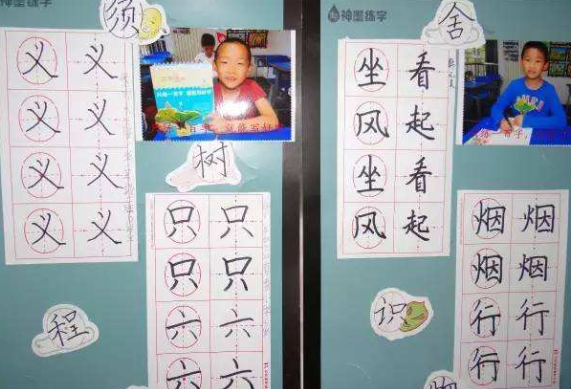 神墨练字
须
义 义
义 义
义 义
义 义
树
只 只
只 只
六 六
六 六
程
神墨练字
舍
坐 看
风 起
坐 看
风 起
烟 烟
烟 烟
行 行
行 行
识